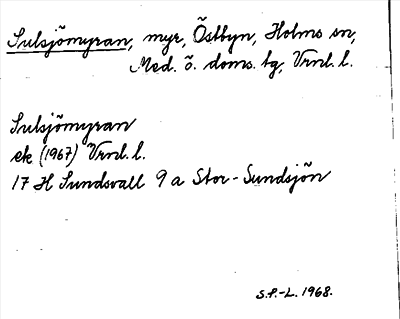 Sulsjömyran, myr, Östbyn, Holms sn,
Med. ö. doms. tg, Vrnl. l.
Sulsjömyran
ek (1967) Vrnl. l.
17 H Sundsvall 9 a Stor-Sundsjön
S.P.-L. 1968.